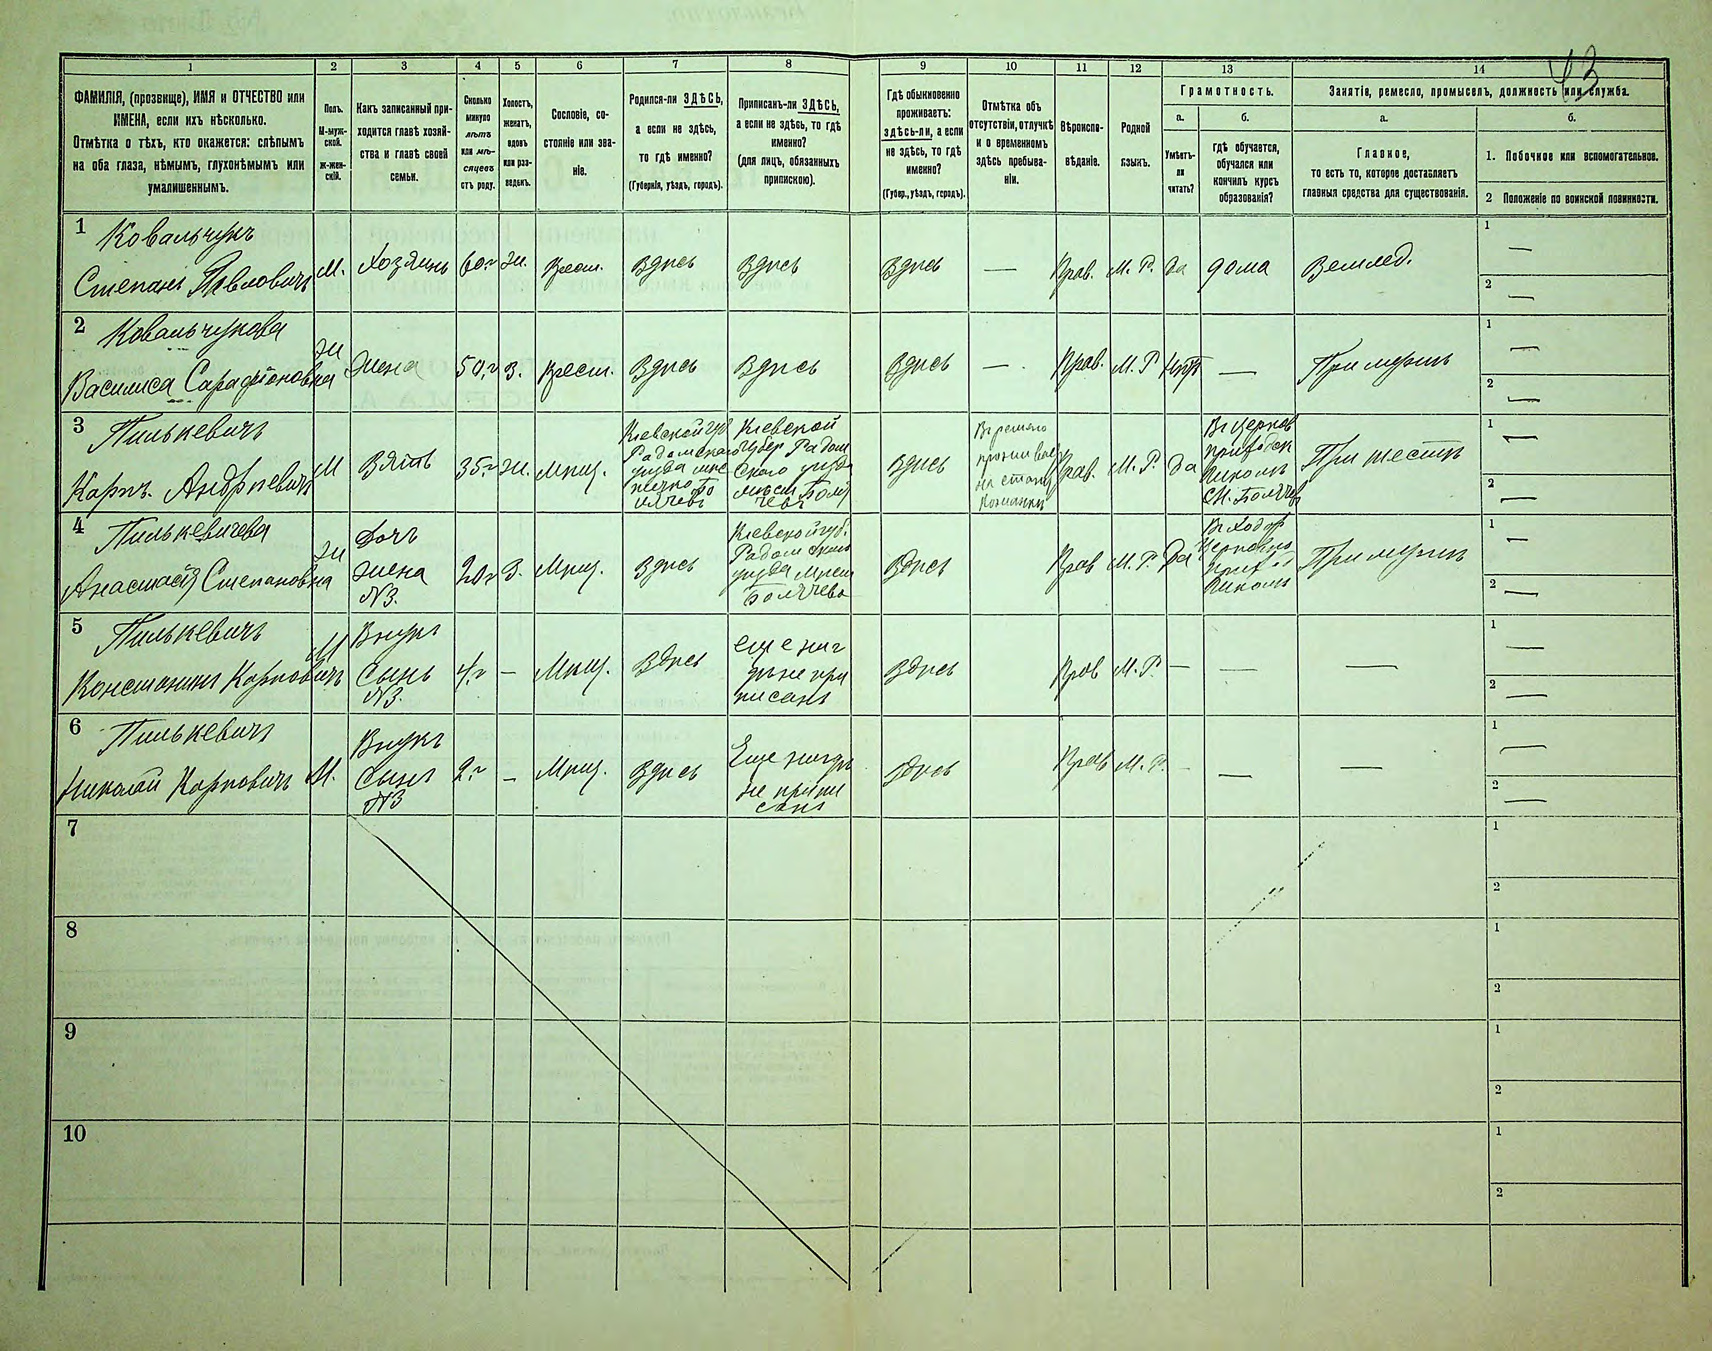 43
1 2 3 4 5 6 7 8 9 10 11 12 13 14
ФАМИЛІЯ, (прозвище), ИМЯ и ОТЧЕСТВО или
ИМЕНА, если ихъ нѣсколько.
Отмѣтка о тѣхъ, кто окажется: слѣпымъ
на оба глаза, нѣмымъ, глухонѣмымъ или
умалишеннымъ.
Полъ.
М-муж-
ской.
ж-жен-
скій.
Какъ записанный при-
ходится главѣ хозяй-
ства и главѣ своей
семьи.
Сколько
минуло
лѣтъ
или мѣ-
сяцевъ
отъ роду.
Холостъ,
женатъ,
вдовъ
или раз-
веденъ.
Сословіе, со-
стояніе или зва-
ніе.
Родился-ли ЗДѢСЬ,
а если не здѣсь,
то гдѣ именно?
(Губернія, уѣздъ, городъ).
Приписанъ-ли ЗДѢСЬ,
а если не здѣсь, то гдѣ
именно?
(для лицъ, обязанныхъ
припискою).
Гдѣ обыкновенно
проживаетъ:
здѣсь-ли, а если
не здѣсь, то гдѣ
именно?
(Губер., уѣздъ, городъ).
Отмѣтка объ
отсутствіи, отлучкѣ
и о временномъ
здѣсь пребыва-
ніи.
Вѣроиспо-
вѣданіе.
Родной
языкъ.
Грамотность.
а.
Умѣетъ-
ли
читать?
б.
гдѣ обучается,
обучался или
кончилъ курсъ
образованія?
Занятія, ремесло, промыселъ, должность или служба.
а.
Главное,
то есть то, которое доставляетъ
главныя средства для существованія.
б.
1. Побочное или вспомогательное.
2 Положеніе по воинской повинности.
1 Ковальчукъ
Степанъ Павловичъ М. Хозяинъ 60 г Ж. Крест. Здѣсь Здѣсь Здѣсь — Прав. М. Р. Да дома Землед.
1 —
2 —
2 Ковальчукова
Василиса Сарафіоновна Ж Жена 50 г З. Крест. Здѣсь Здѣсь Здѣсь — Прав. М. Р Нѣтъ — При мужѣ
1 —
2 —
3 Пилькевичъ
Карпъ Андрѣевичъ М Зять 35 г Ж. Мѣщ.
Кіевской губ
Радомскаго
уѣзда мѣс
Кіевской
Губер Радом
скаго уѣзда
Здѣсь
Прав. М. Р. Да
При тестѣ
1 —
2 —
4 Пилькевичева
Анастасія Степановна Ж
Дочь
жена
№3.
20 г З. Мѣщ. Здѣсь
Кіевской губ.
Радомскаго
уѣзда мѣст
Здѣсь Прав М. Р. Да
При мужѣ
1 —
2 —
5 Пилькевичъ
Константинъ Карповичъ М
Внукъ
Сынъ
№3.
4 г — Мѣщ. Здѣсь
еще ниг
дѣ не при
писанъ
Здѣсь Прав М. Р. — — —
1 —
2 —
6 Пилькевичъ
Николай Карповичъ М.
Внукъ
Сынъ
№3
2 г — Мѣщ. Здѣсь
Еще нигдѣ
не припи
санъ
Здѣсь Прав М. Р. — — —
1 —
2 —
7
1
2
8
1
2
9
1
2
10
1
2